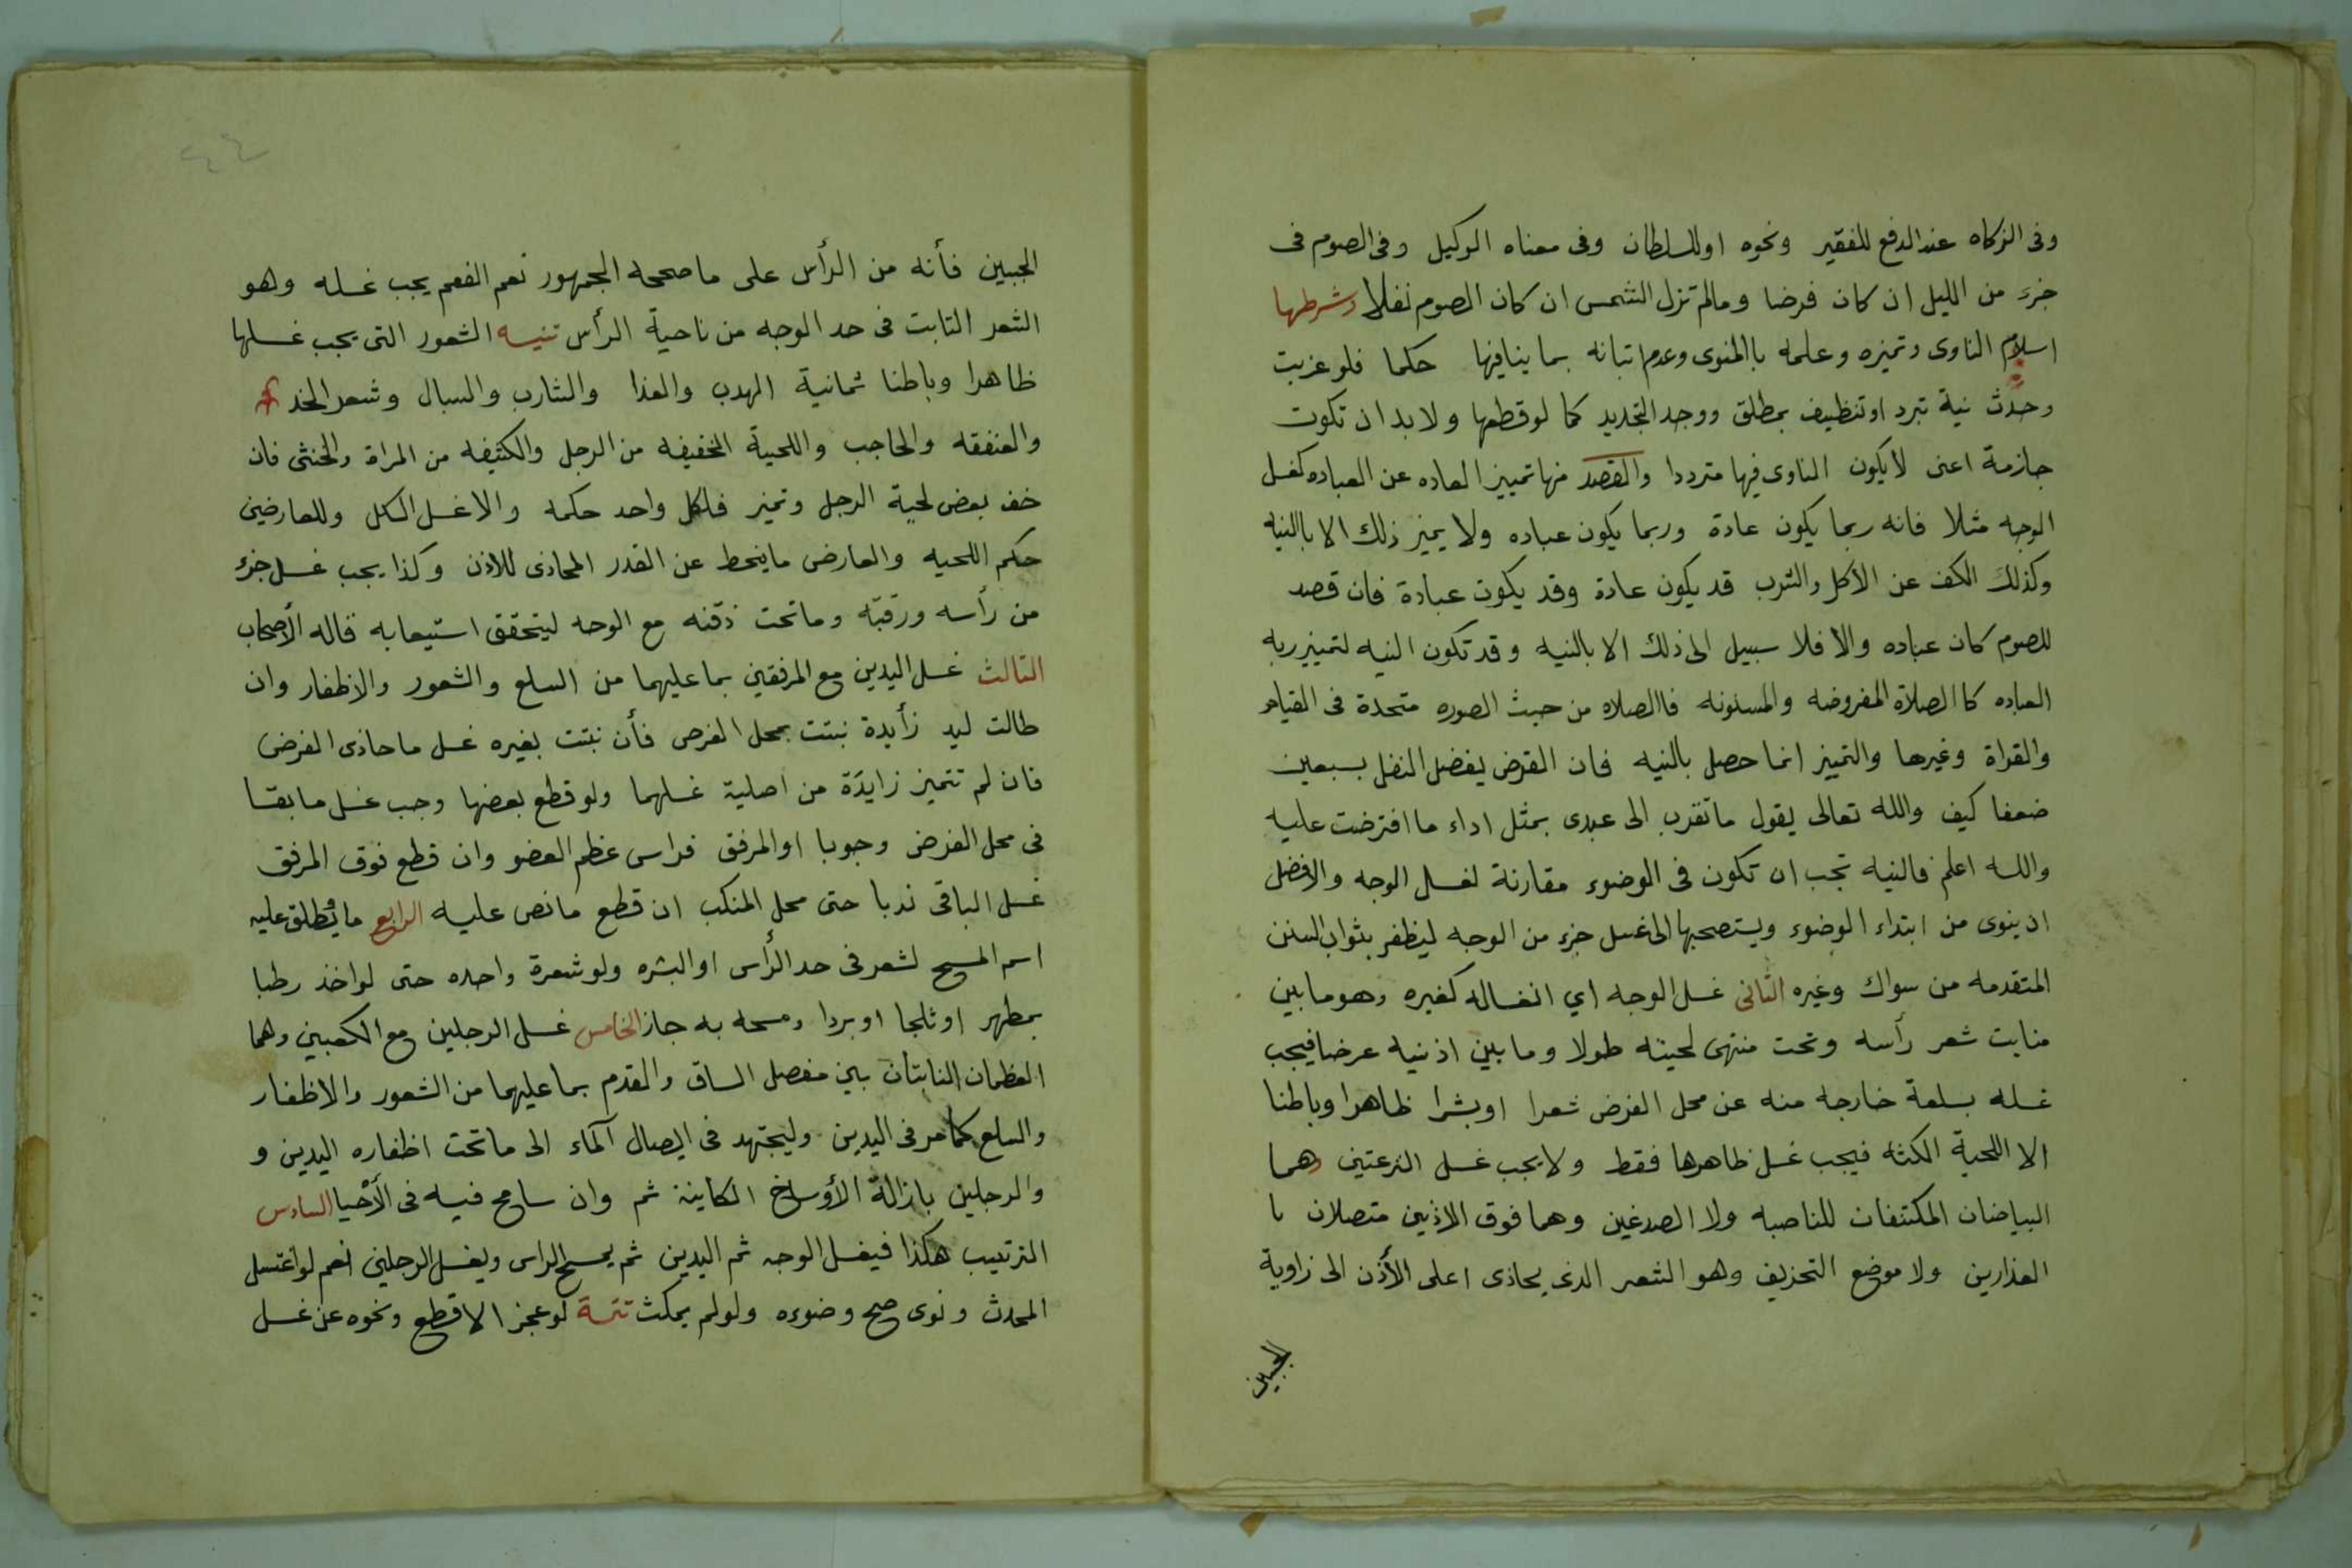 وفى الزكاه عند الدفع للفقير ونحوه او للسلطان وفى معناه الوكيل وفى الصوم فى
جزء من الليل ان كان فرضا ومالم تزل الشمس ان كان الصوم نفلا وشرطها
اسلام الناوى وتميزه وعلمه باالمنوى وعدم اتيانه بما ينافيها حكما فلو عزبت
وحدث نية تبرد او تنظيف بمطلق ووجد التجديد كما لو قطعها ولا بد ان تكون
جازمة اعنى لا يكون الناوى فيها مترددا والقصد منها تمييز العاده عن العباده كغسل
الوجه مثلا فانه ربما يكون عادة وربما يكون عباده ولا يميز ذلك الا باالنيه
وكذلك الكف عن الأكل والشرب قد يكون عادة وقد يكون عبادة فان قصد
للصوم كان عباده والا فلا سبيل الى ذلك الا بالنيه وقد تكون النيه لتمييز ربه
العباده كا الصلاة المفروضه والمسنونه فاالصلاه من حيث الصوره متحدة فى القيام
والقراة وغيرها والتميز انما حصل بالنيه فان الفرض يفضل النفل بسبعين
ضعفا كيف والله تعالى يقول ما تقرب الى عبدى بمثل اداء ما افترضت عليه
والله اعلم فالنيه تجب ان تكون فى الوضوء مقارنة لغسل الوجه والافضل
ان ينوى من ابتداء الوضوء ويستصحبها الى غسل جزء من الوجه ليظفر بثواب السنن
المتقدمه من سواك وغيره الثانى غسل الوجه اي انغساله كغيره وهو ما بين
منابت شعر رأسه وتحت منتهى لحيته طولا وما بين اذنيه عرضا فيجب
غسله بسلعة خارجه منه عن محل الفرض شعرا اوبشرا ظاهرا وباطنا
الا اللحية الكثه فيجب غسل ظاهرها فقط ولا يجب غسل النزعتين وهما
البياضان المكتنفان للناصيه ولا الصدغين وهما فوق الاذنين متصلان با
العذارين ولا موضع التحذيف وهو الشعر الذى يحاذى اعلى الأذن الى زاوية
الجبين
٤٤
الجبين فأنه من الرأس على ما صححه الجمهور نعم الغمم يجب غسله وهو
الشعر النابت فى حد الوجه من ناحية الرأس تنبيه الشعور التى يجب غسلها
ظاهرا وباطنا ثمانية الهدب والعذا والشارب والسبال وشعر الخد
والعنفقه والحاجب واللحية الخفيفه من الرجل والكثيفه من المراة والخنثى فان
خف بعض لحية الرجل وتميز فلكل واحد حكمه والا غسل الكل وللعارضين
حكم اللحيه والعارض ما ينحط عن القدر المحاذى للاذن وكذا يجب غسل جزء
من رأسه ورقبته وما تحت ذقنه مع الوجه ليتحقق استيعابه قاله الأصحاب
الثالث غسل اليدين مع المرفقين بما عليهما من السلع والشعور والاظفار وان
طالت ليد زأيدة نبتت بمحل الفرص فأن نبتت بغيره غسل ما حاذى الفرض
فان لم تتميز زايدة من اصلية غسلهما ولو قطع بعضها وجب غسل ما بقا
فى محل الفرض وجوبا او المرفق فراس عظم العضو وان قطع فوق المرفق
غسل الباقى ندبا حتى محل المنكب ان قطع ما نص عليه الرابع ما يطلق عليه
اسم المسح لشعر فى حد الرأس او البشره ولو شعرة واحده حتى لو اخذ رطبا
بمطهر او ثلجا او بردا ومسحه به جاز الخامس غسل الرجلين مع الكعبين وهما
العظمان النابتان بين مفصل الساق والقدم بما عليهما من الشعور والاظفار
والسلع كما مر فى اليدين وليجتهد فى ايصال آلماء الى ما تحت اظفاره اليدين و
والرجلين بازالة الأوساخ الكاينة ثم وان سامح فيه فى الأحيا السادس
الترتيب هكذا فيغسل الوجه ثم اليدين ثم يمسح الراس ويغسل الرجلين نعم لو اغتسل
المحدث ونوى صح وضوءه ولو لم يمكث تتمة لو عجز الاقطع ونحوه عن غسل